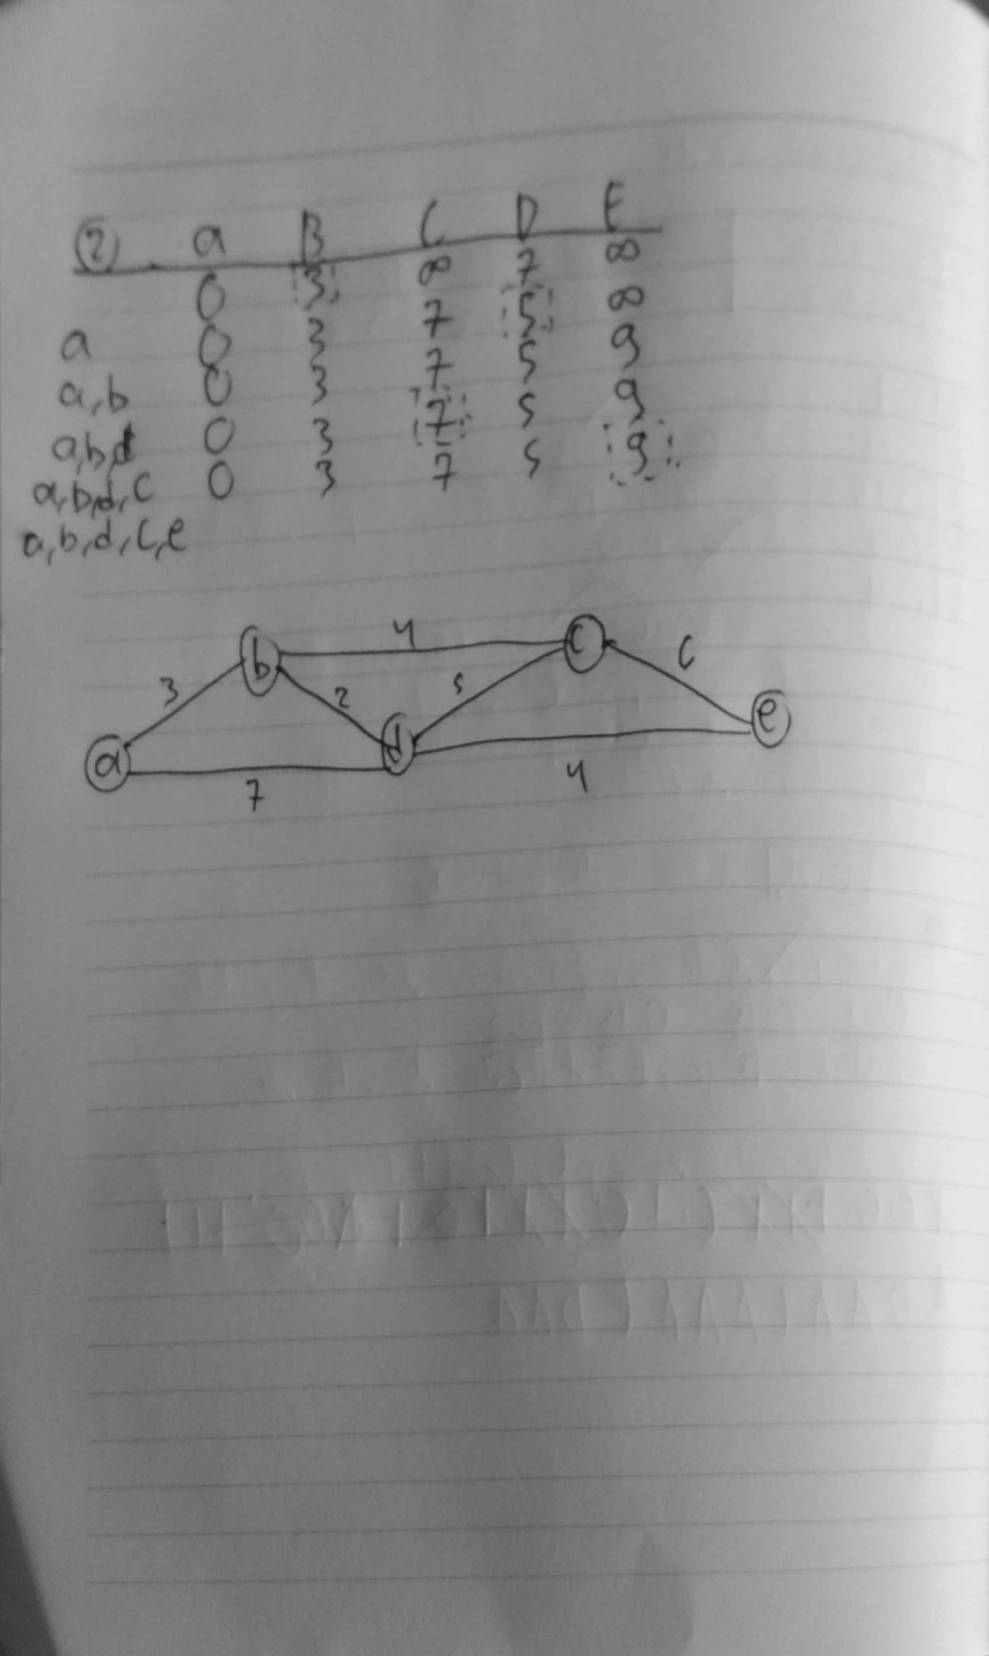 ② a B C D E
0 3 ∞ 7 ∞
a 0 3 7 5 ∞
a,b 0 3 7 5 9
a,b,d 0 3 7 5 9
a,b,d,c 0 3 7 5 9
a,b,d,c,e
b 4 c 6
3 2 5 e
a d
7 4